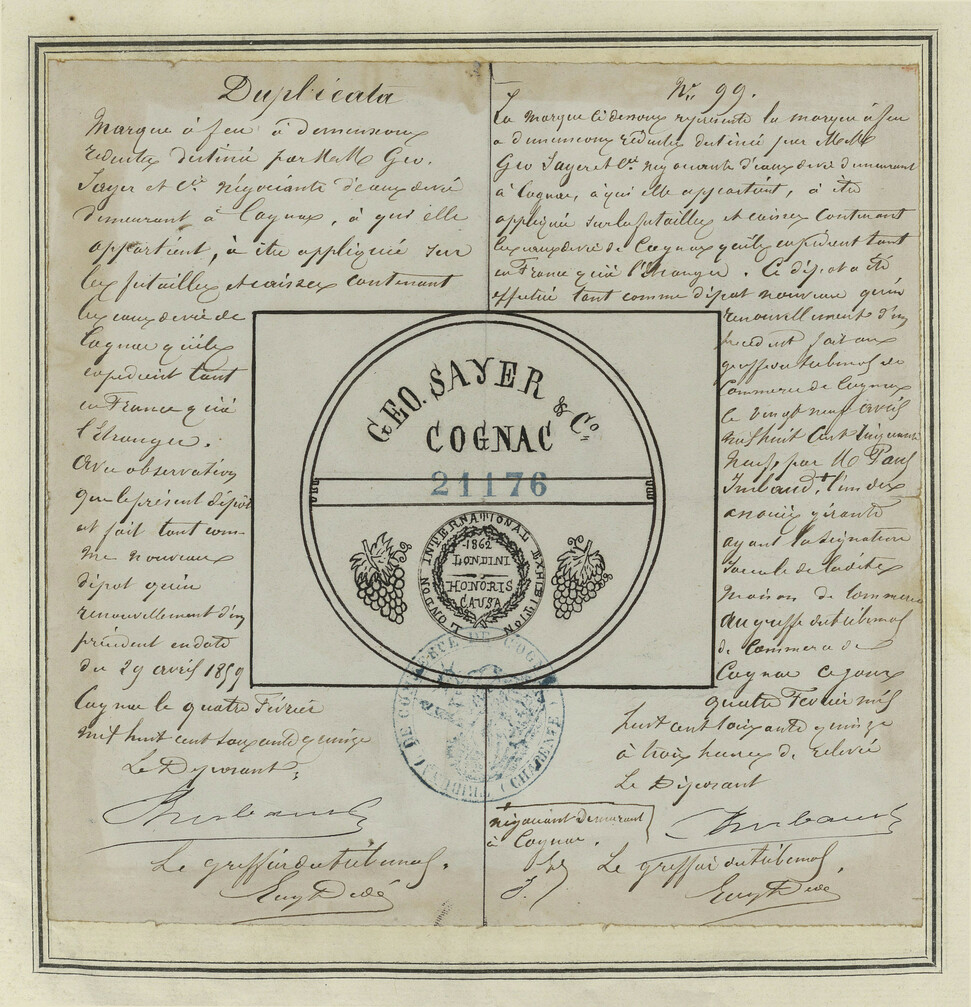 Duplicata
Marque à feu à dimensions
réduites destinée par M.M. Geo.
Sayer et Cie négociants d'eaux de vie
demeurant à Cognac, à qui elle
appartient, à être appliquée sur
les futailles et caisses contenant
les eaux de vie de
Cognac qu'ils
expédient tant
en France qu'à
l'Etranger.
Avec observation
que le présent dépôt
est fait tant com-
me nouveau
dépôt qu'en
renouvellement d'un
précédent en date
du 29 avril 1859
Cognac le quatre Février
mil huit cent soixante quinze
Le Déposant,
Le greffier du tribunal.
No 99.
La marque ci dessous représente la marque à feu
à dimensions réduites destinée par M.M.
Geo Sayer et Cie négociants d'eaux de vie demeurant
à Cognac, à qui elle appartient, à être
appliquée sur les futailles et caisses contenant
les eaux de vie de Cognac qu'ils expédient tant
en France qu'à l'étranger. Ce dépôt a été
effectué tant comme dépôt nouveau qu'en
renouvellement d'un
précédent fait au
greffe du tribunal de
Commerce de Cognac
le vingt neuf avril
mil huit cent cinquante
neuf, par M. Paul
Imbaud, l'un des
associés gérants
ayant la signature
sociale de la dite
maison de commerce
au greffe du tribunal
de Commerce de
Cognac ce jour
quatre Février mil
huit cent soixante quinze
à trois heures de relevée
Le Déposant
Imbaud
négociant demeurant
à Cognac.
Le greffier du tribunal.
GEO. SAYER & Co.
COGNAC
21176
LONDON INTERNATIONAL EXHIBITION
1862
LONDINI
HONORIS
CAUSA
TRIBUNAL DE COMMERCE DE COGNAC (CHARENTE)